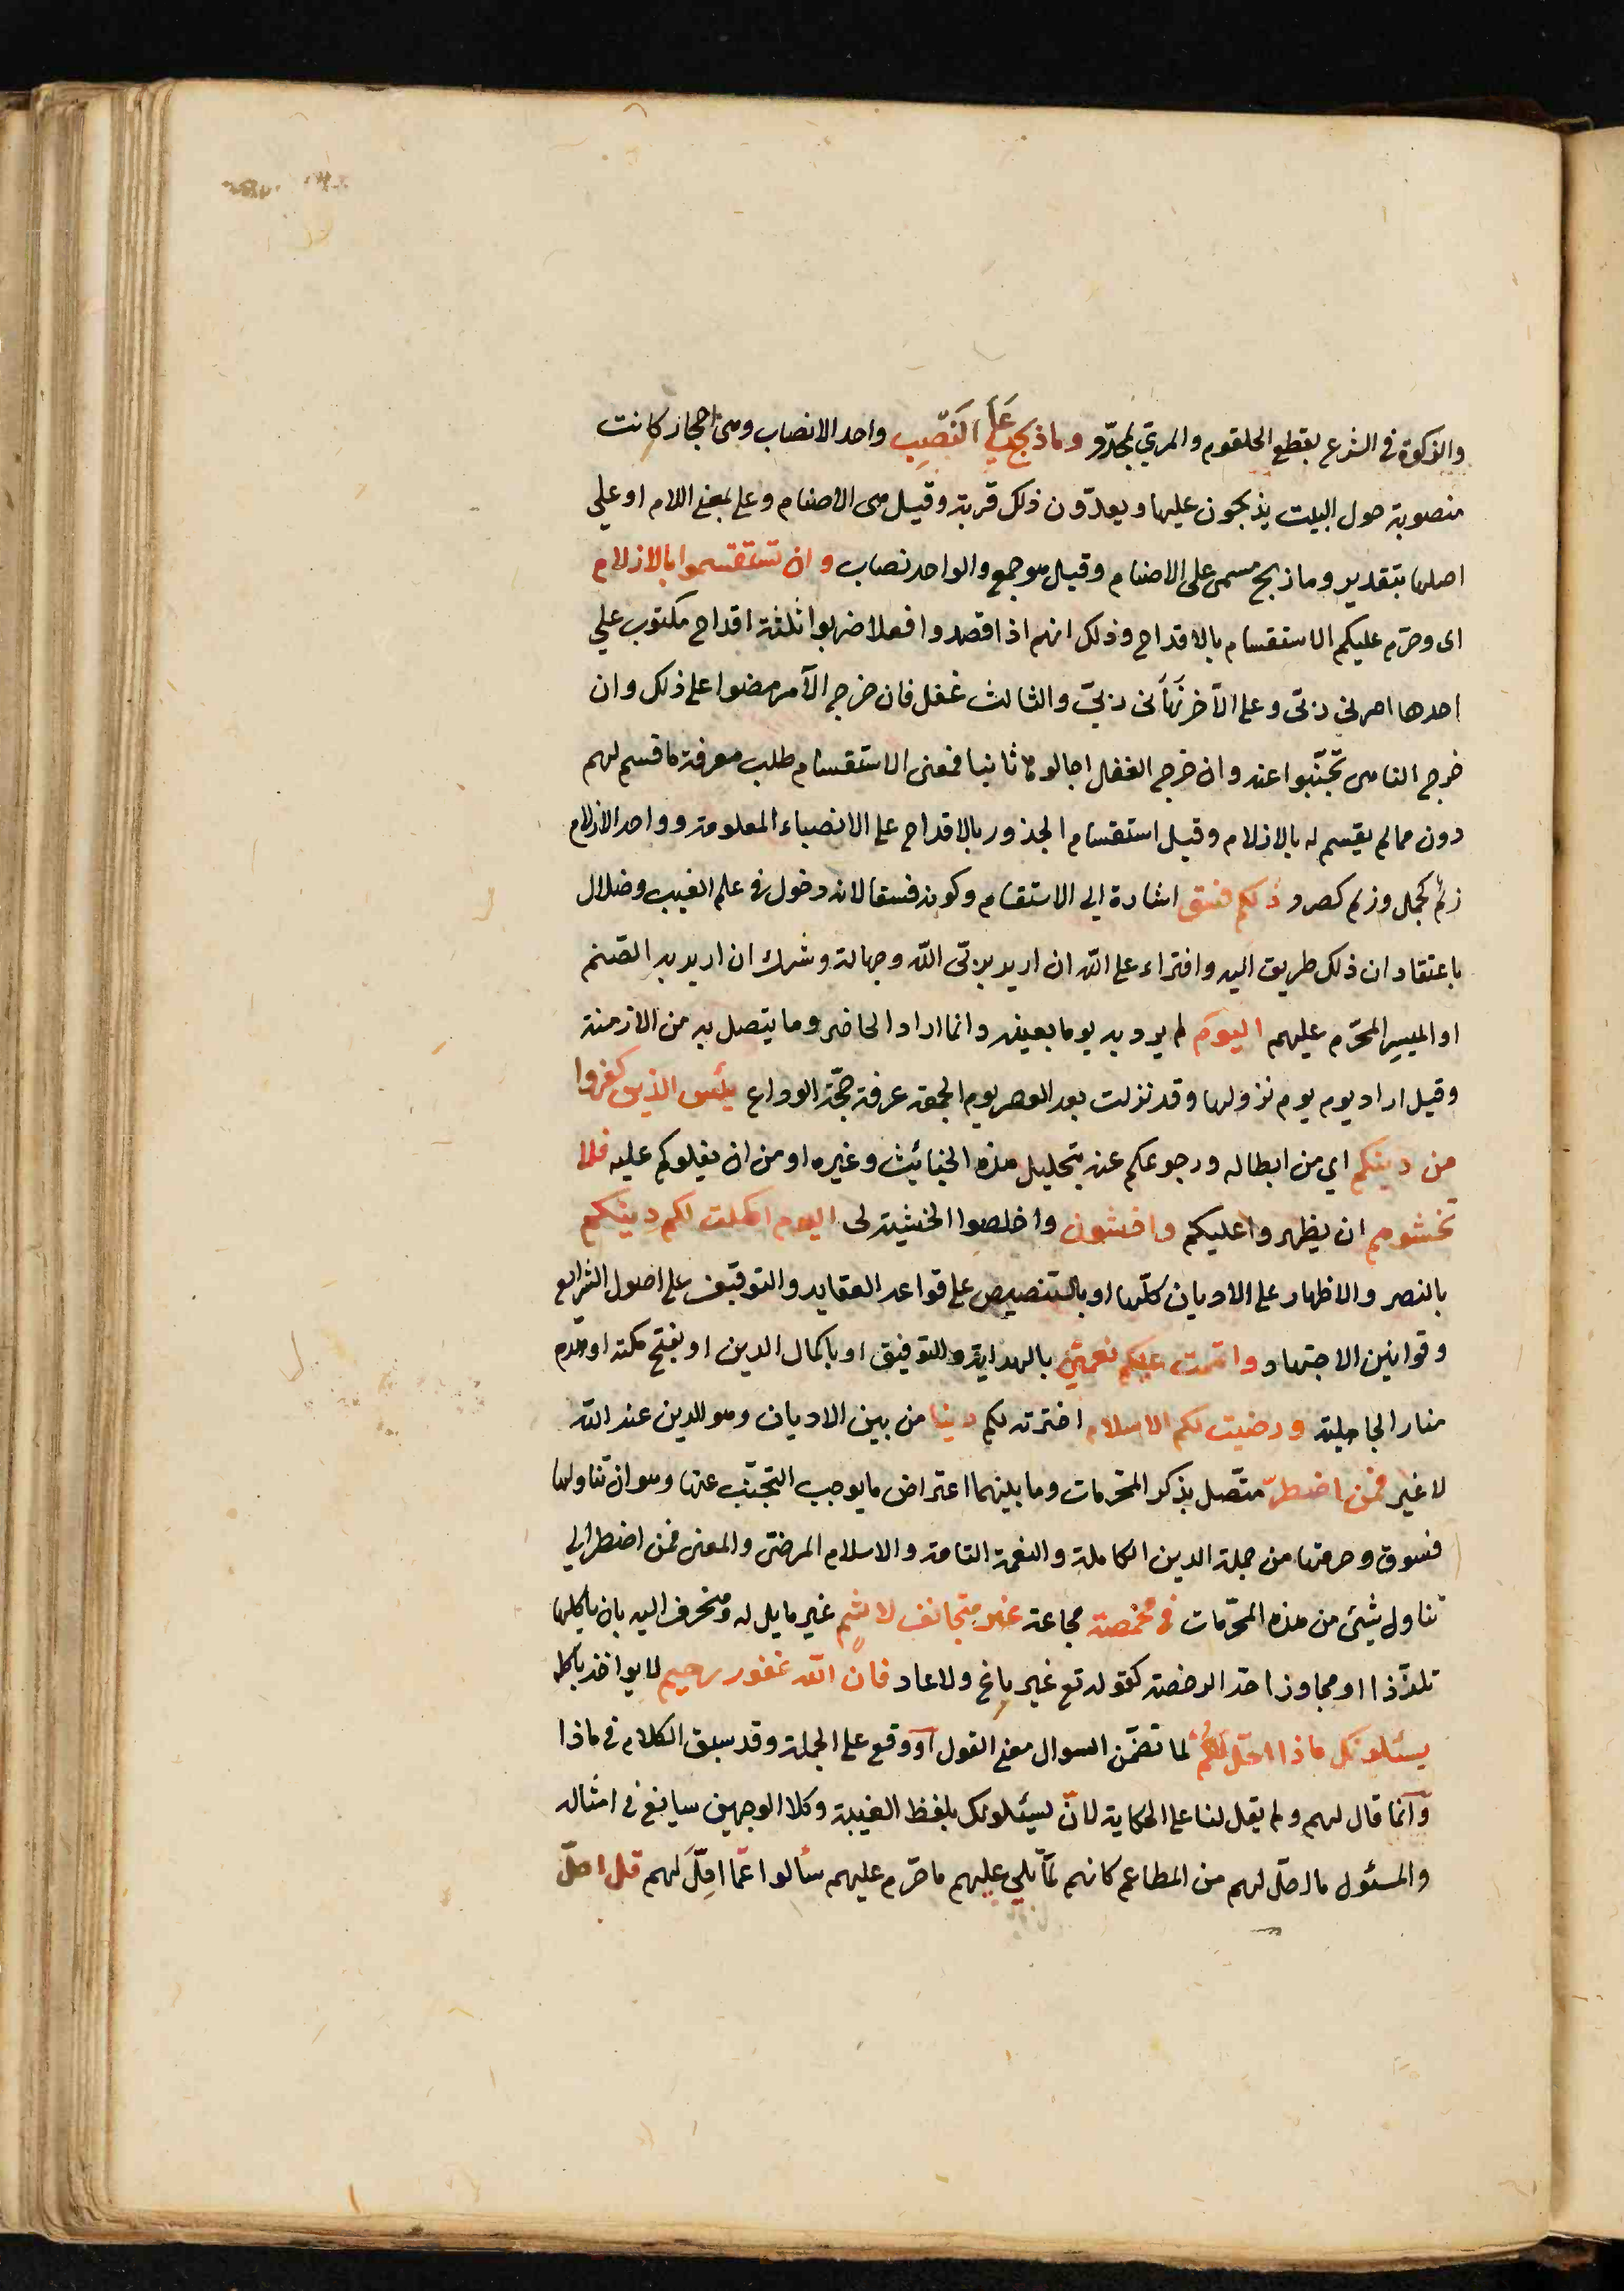 والذكوة في الشرع بقطع الحلقوم والمريّ بمحدّد وما ذبح على النّصب واحد الانصاب وهى احجار كانت
منصوبة حول البيت يذبحون عليها ويعدّون ذلك قربة وقيل هى الاصنام وعلى بمعنى اللام او على
اصلها بتقدير وما ذبح مسمى على الاصنام وقيل هو جمع والواحد نصاب وان تستقسموا بالازلام
اى وحرّم عليكم الاستقسام بالاقداح وذلك انهم اذا قصدوا فعلا ضربوا ثلثة اقداح مكتوب على
احدها امرنى ربّى وعلى الآخر نهانى ربّى والثالث غفل فان خرج الآمر مضوا على ذلك وان
خرج الناهى تجنّبوا عنه وان خرج الغفل اجالوها ثانيا فمعنى الاستقسام طلب معرفة ما قسم لهم
دون ما لم يقسم له بالازلام وقيل استقسام الجذور بالاقداح على الانصباء المعلومة وواحد الازلام
زلم كجمل وزلم كصرد ذلكم فسق اشارة الى الاستقسام وكونه فسقا لانه دخول في علم الغيب وضلال
باعتقاد ان ذلك طريق اليه وافتراء على اللّه ان اريد بربّى اللّه وجهالة وشرك ان اريد به الصّنم
او الميسر المحرّم عليهم اليوم لم يرد به يوما بعينه وانما اراد الحاضر وما يتصل به من الازمنة
وقيل اراد يوم يوم نزولها وقد نزلت بعد العصر يوم الجمعة عرفة حجّة الوداع يئس الذين كفروا
من دينكم اي من ابطاله ورجوعكم عنه بتحليل هذه الخبائث وغيره او من ان يغلوكم عليه فلا
تخشوهم ان يظهروا عليكم واخشون واخلصوا الخشية لى اليوم اكملت لكم دينكم
بالنصر والاظهار على الاديان كلّها او بالتنصيص على قواعد العقايد والتوقيف على اصول الشرايع
وقوانين الاجتهاد واتممت عليكم نعمتى بالهداية والتوفيق او باكمال الدين او بفتح مكة او هدم
منار الجاهلية ورضيت لكم الاسلام اخترته لكم دينا من بين الاديان وهو الدين عند اللّه
لا غير فمن اضطرّ متّصل بذكر المحرمات وما بينهما اعتراض ما يوجب التجنّب عنها وهو ان تناولها
فسوق وحرمتها من جملة الدين الكاملة والنعمة التامة والاسلام المرضى والمعنى فمن اضطر الى
تناول شئ من هذه المحرّمات في مخمصة مجاعة غير متجانف لاثم غير مايل له ومنحرف اليه بان ياكلها
تلذّذا او مجاوزا حدّ الرخصة كقوله تع غير باغ ولا عاد فان اللّه غفور رحيم لا يواخذ باكله
يسئلونك ماذا احلّ لهم لما تضمّن السوال معنى القول آو وقع على الجملة وقد سبق الكلام في ماذا
وانّما قال لهم ولم يقل لنا على الحكاية لانّ يسئلونك بلفظ الغيبة وكلا الوجهين سايغ في امثاله
والمسئول ما احلّ لهم من المطاعم كانهم لمّا تلى عليهم ما حرّم عليهم سألوا عمّا احلّ لهم قل احلّ